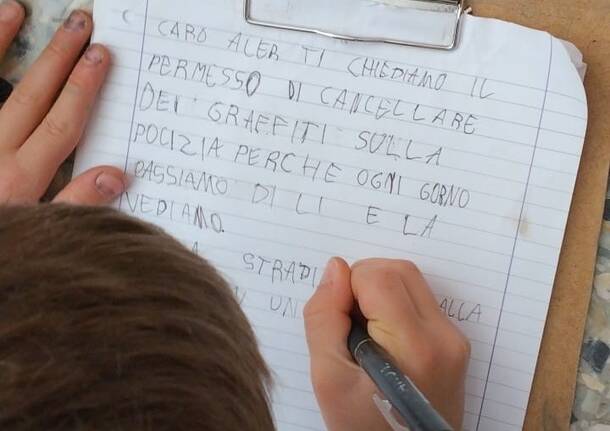 CARO ALER TI CHIEDIAMO IL
PERMESSO DI CANCELLARE
DEI GRAFFITI SULLA
POLIZIA PERCHE OGNI GORNO
PASSIAMO DI LI E LA
VEDIAMO.
A STRADI
UN ALLA